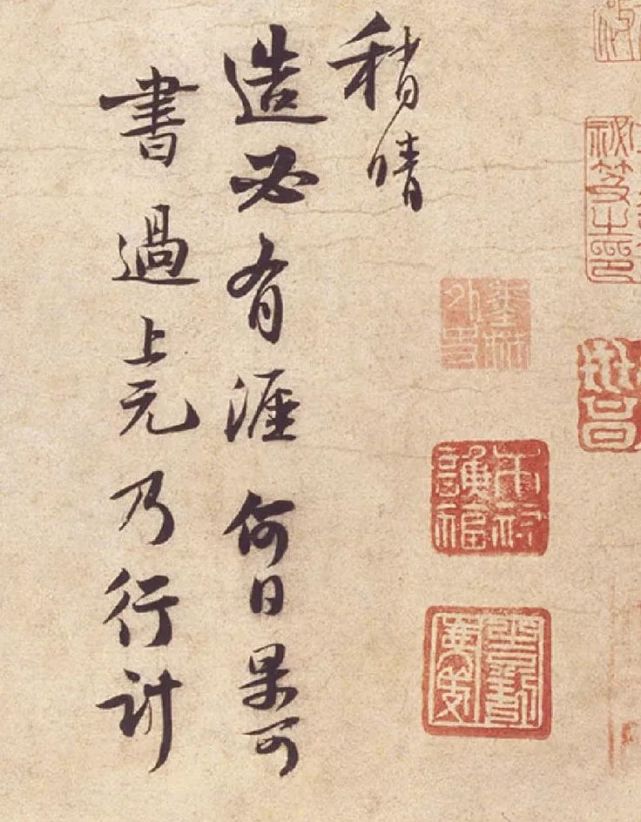 秘笈之印
稍晴
造必有涯何日果可
書過上元乃行計